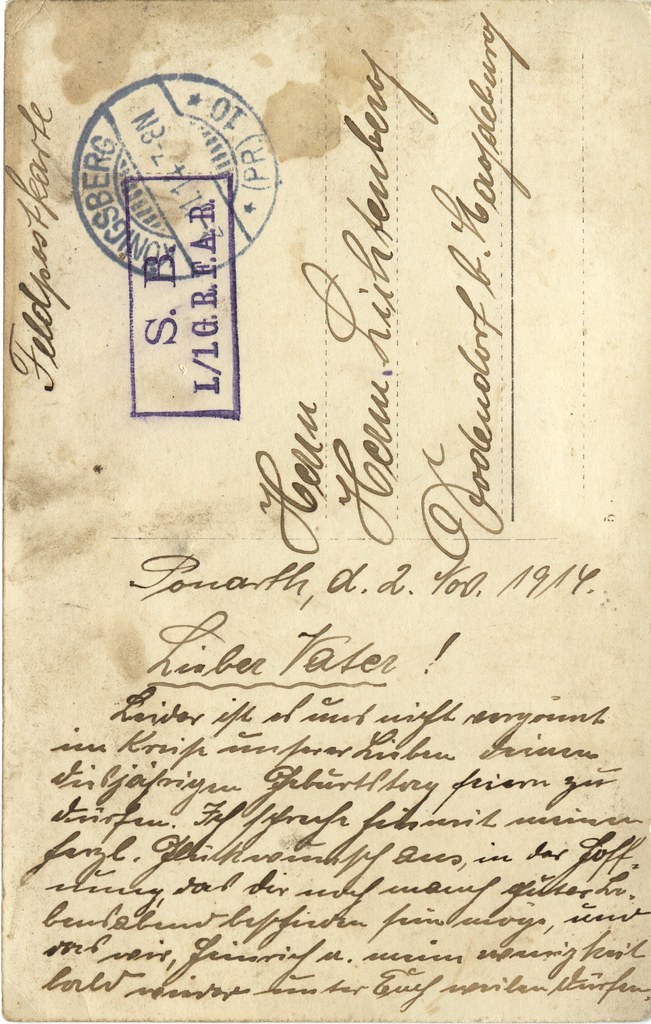 Feldpostkarte
KÖNIGSBERG (PR)
* 10 *
1.14 7-8N
S. B.
L/1 G. R. F. A. R.
Herrn
Herm. Lichtenberg
Bodendorf b. Magdeburg
5
Ponarth, d. 2. Nov. 1914.
Lieber Vater!
Leider ist es uns nicht vergönnt
im Kreise unserer Lieben deinen
diesjährigen Geburtstag feiern zu
dürfen. Ich spreche hiermit meinen
herzl. Glückwunsch aus, in der Hoff-
nung, das dir noch manch guter Le-
bensabend beschieden sein möge, und
das wir, Heinrich u. meine wenigkeit
bald wieder unter Euch weilen dürfen.